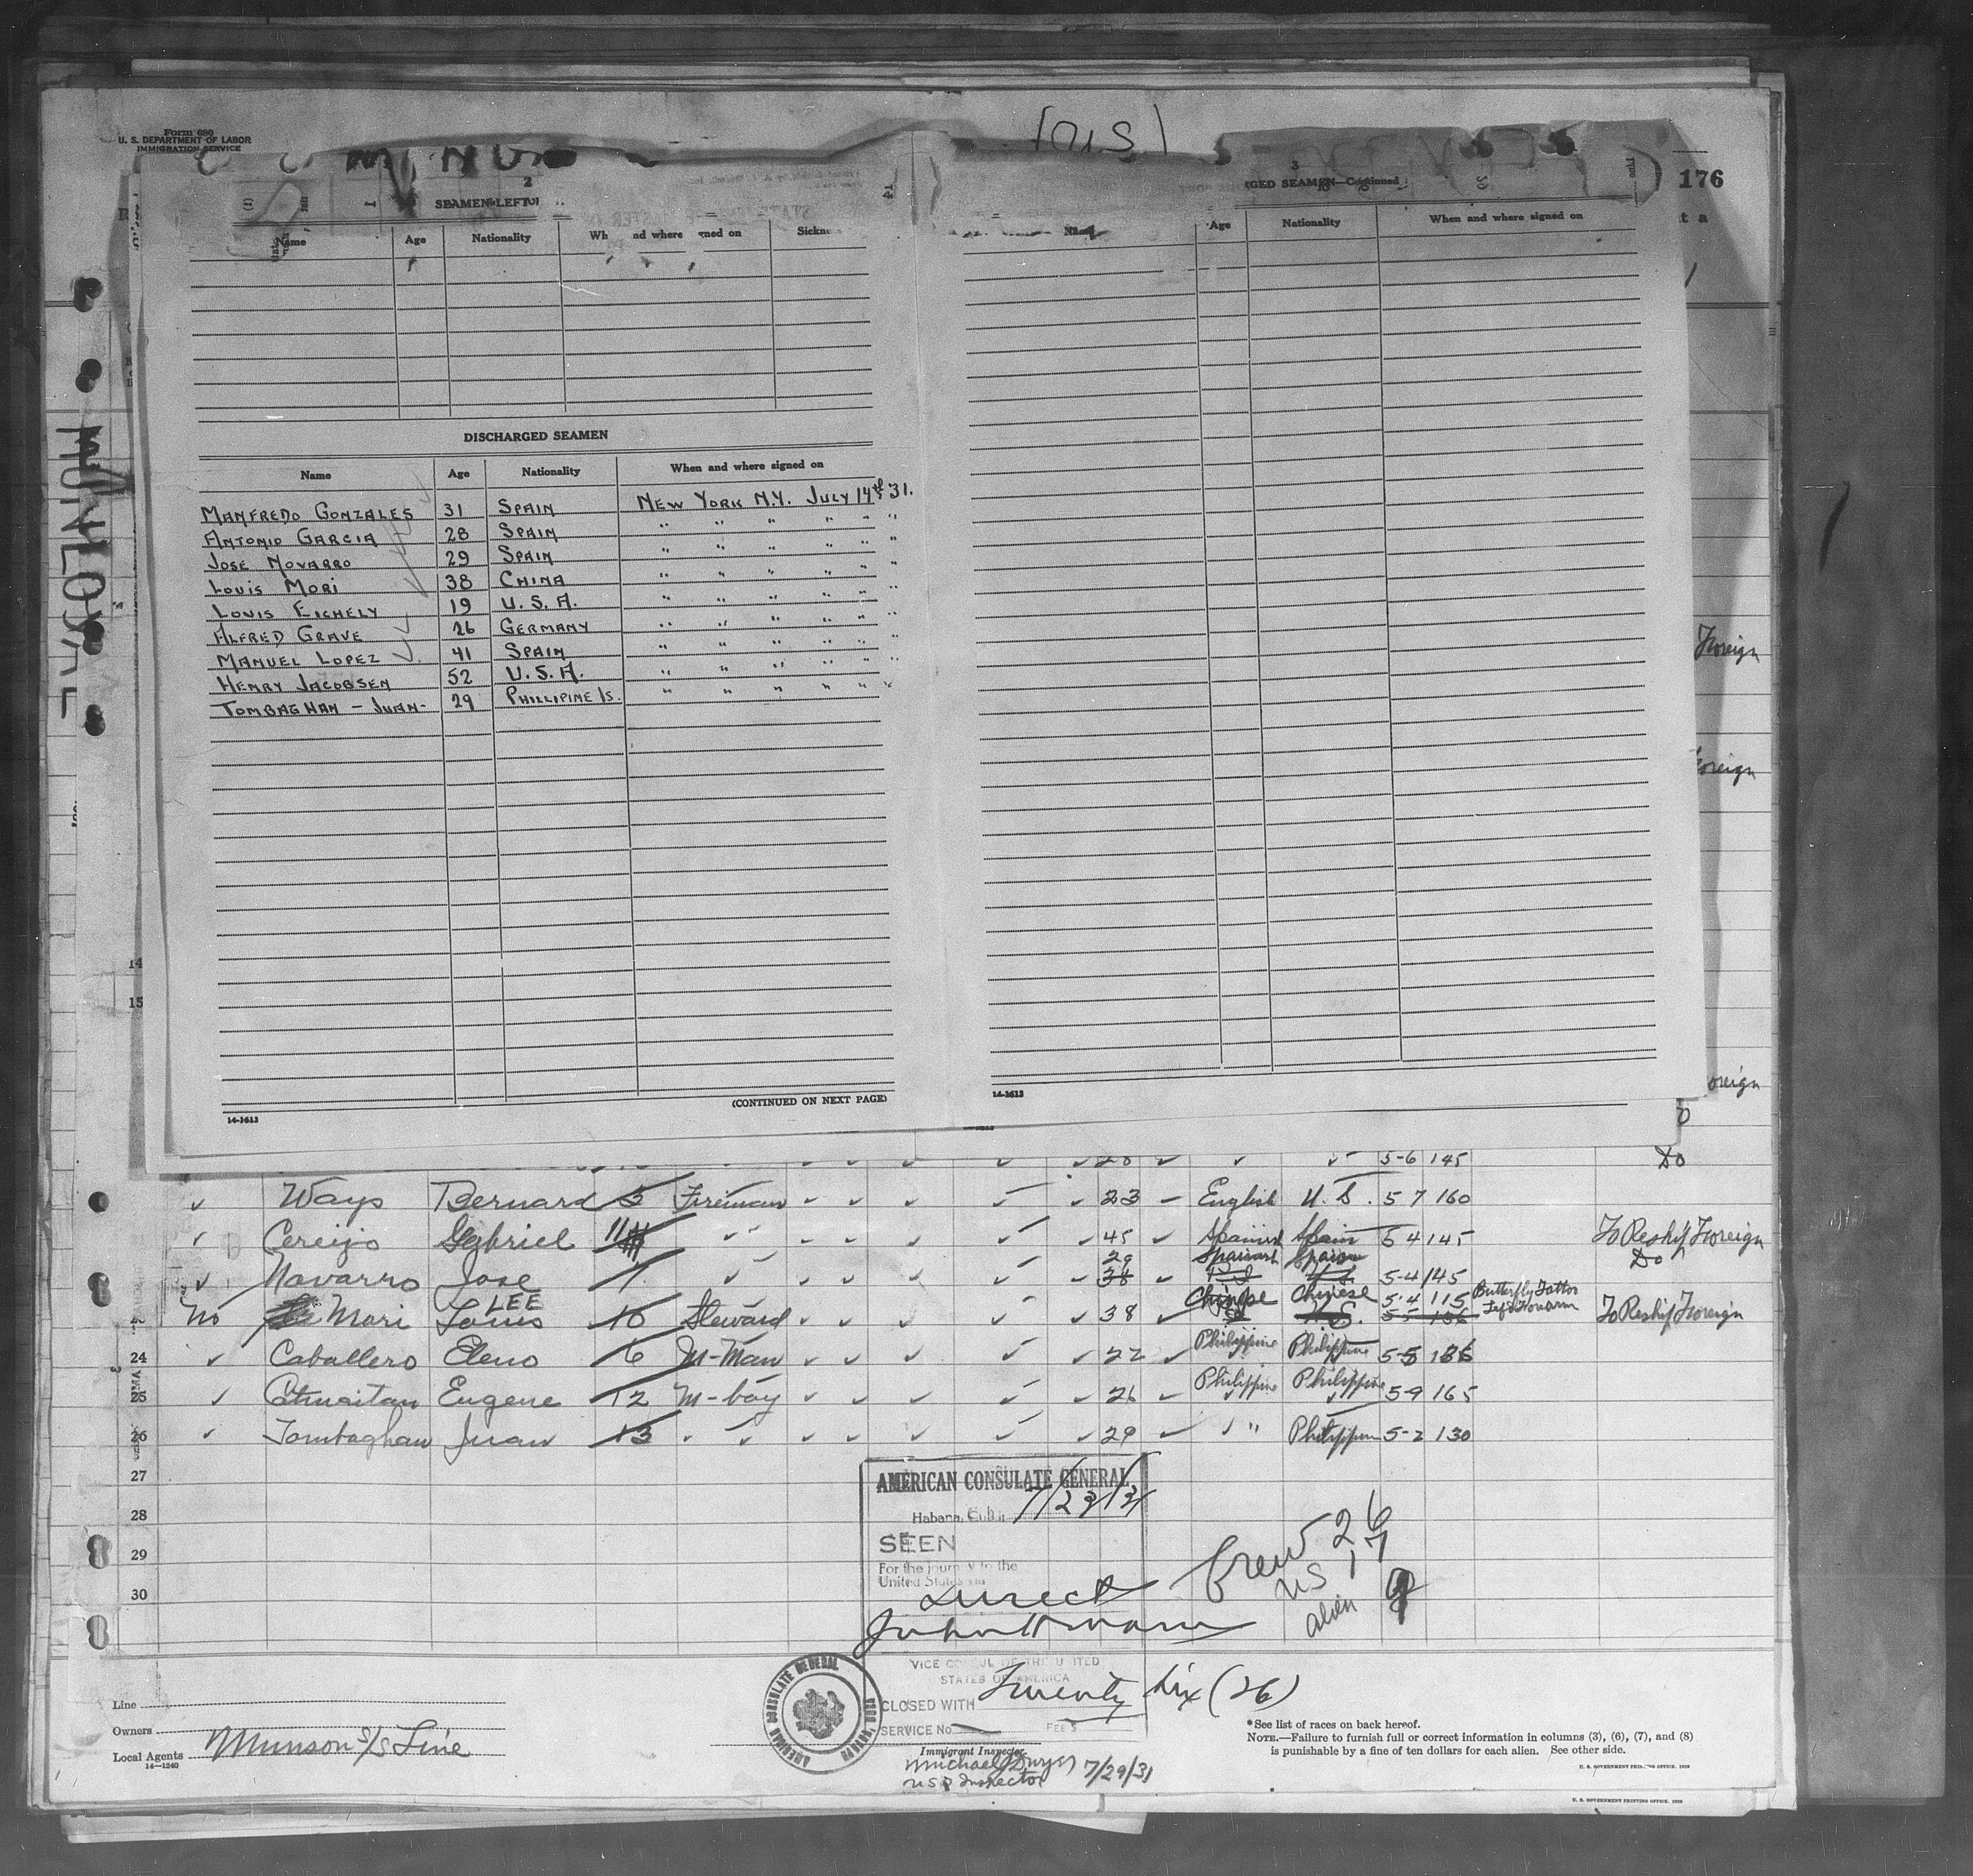 Form 680
U. S. DEPARTMENT OF LABOR
IMMIGRATION SERVICE
(U.S)
176
t a
2
SEAMEN LEFT
Name Age Nationality Wh nd where ned on Sickn
DISCHARGED SEAMEN
Name Age Nationality When and where signed on
MANFREDO GONZALES 31 SPAIN NEW YORK N.Y. JULY 14th 31.
ANTONIO GARCIA 28 SPAIN " " " " " "
JOSE NOVARRO 29 SPAIN " " " " " "
LOUIS MORI 38 CHINA " " " " " "
LOUIS EICHELY 19 U. S. A. " " " " " "
ALFRED GRAVE 26 GERMANY " " " " " "
MANUEL LOPEZ 41 SPAIN " " " " " "
HENRY JACOBSEN 52 U. S. A. " " " " " "
TOMBAGHAN - JUAN- 29 PHILLIPINE IS. " " " " " "
(CONTINUED ON NEXT PAGE)
14-1613
3
GED SEAMEN—Continued
Name Age Nationality When and where signed on
14-1613
MUNLOYAL
14
15
Foreign
oreign
oreign
Do
28 5-6 145 Do
Ways Bernard 5 Fireman 23 English U. S. 5 7 160
Cereijo Gabriel 11 45 Spanish Spain 5 4 145 To Reship Foreign
Navarro Jose 7 29 38 Spanish Spain 5-4 145 Do
No Mari Louis LEE 10 Steward 38 Chinese Chinese 5-4 115 Butterfly Tattoo Left Forearm To Reship Foreign
24 Caballero Eleno 6 M-Man 22 Philippine Philippine 5-5
25 Eugene 12 M-boy 26 Philippine Philippine 5-9 165
26 Tombaghan Juan 13 29 " Philippine 5-2 130
27
28
29
30
AMERICAN CONSULATE GENERAL
Habana, Cuba
SEEN
For the journey to the
United States via
Direct
Crew 26
US 17
alien 9
VICE CONSUL OF THE UNITED
STATES OF AMERICA
CLOSED WITH Twenty Six (26)
SERVICE No. FEE $
AMERICAN CONSULATE GENERAL
Line
Owners
Local Agents Munson S/S Line
14—1240
Immigrant Inspector.
Michael J Dwyer 7/29/31
US Inspector
*See list of races on back hereof.
NOTE.—Failure to furnish full or correct information in columns (3), (6), (7), and (8)
is punishable by a fine of ten dollars for each alien. See other side.
U. S. GOVERNMENT PRINTING OFFICE. 1929
U. S. GOVERNMENT PRINTING OFFICE. 1929